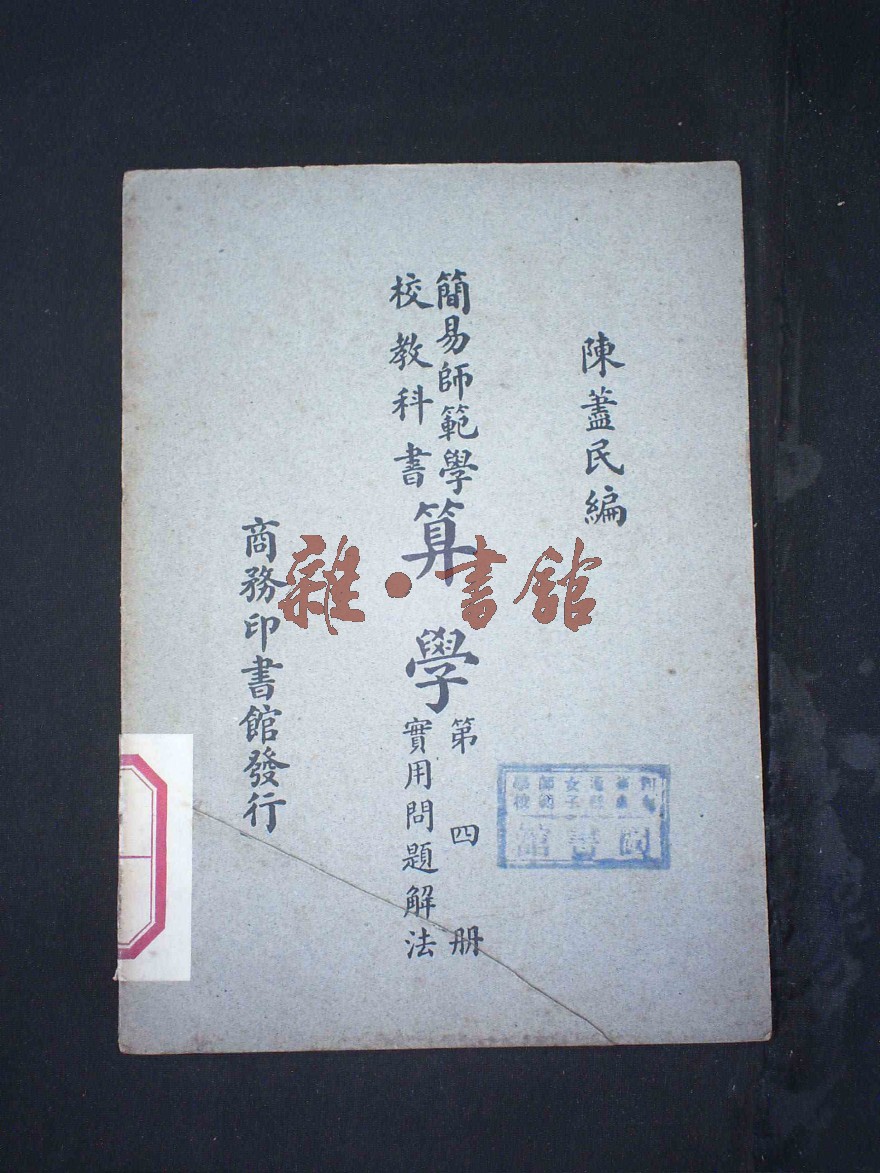 陳藎民編
簡易師範學
校教科書
算學
第四册
實用問題解法
商務印書館發行
雜·書館
女子
師範
學校
圖書館